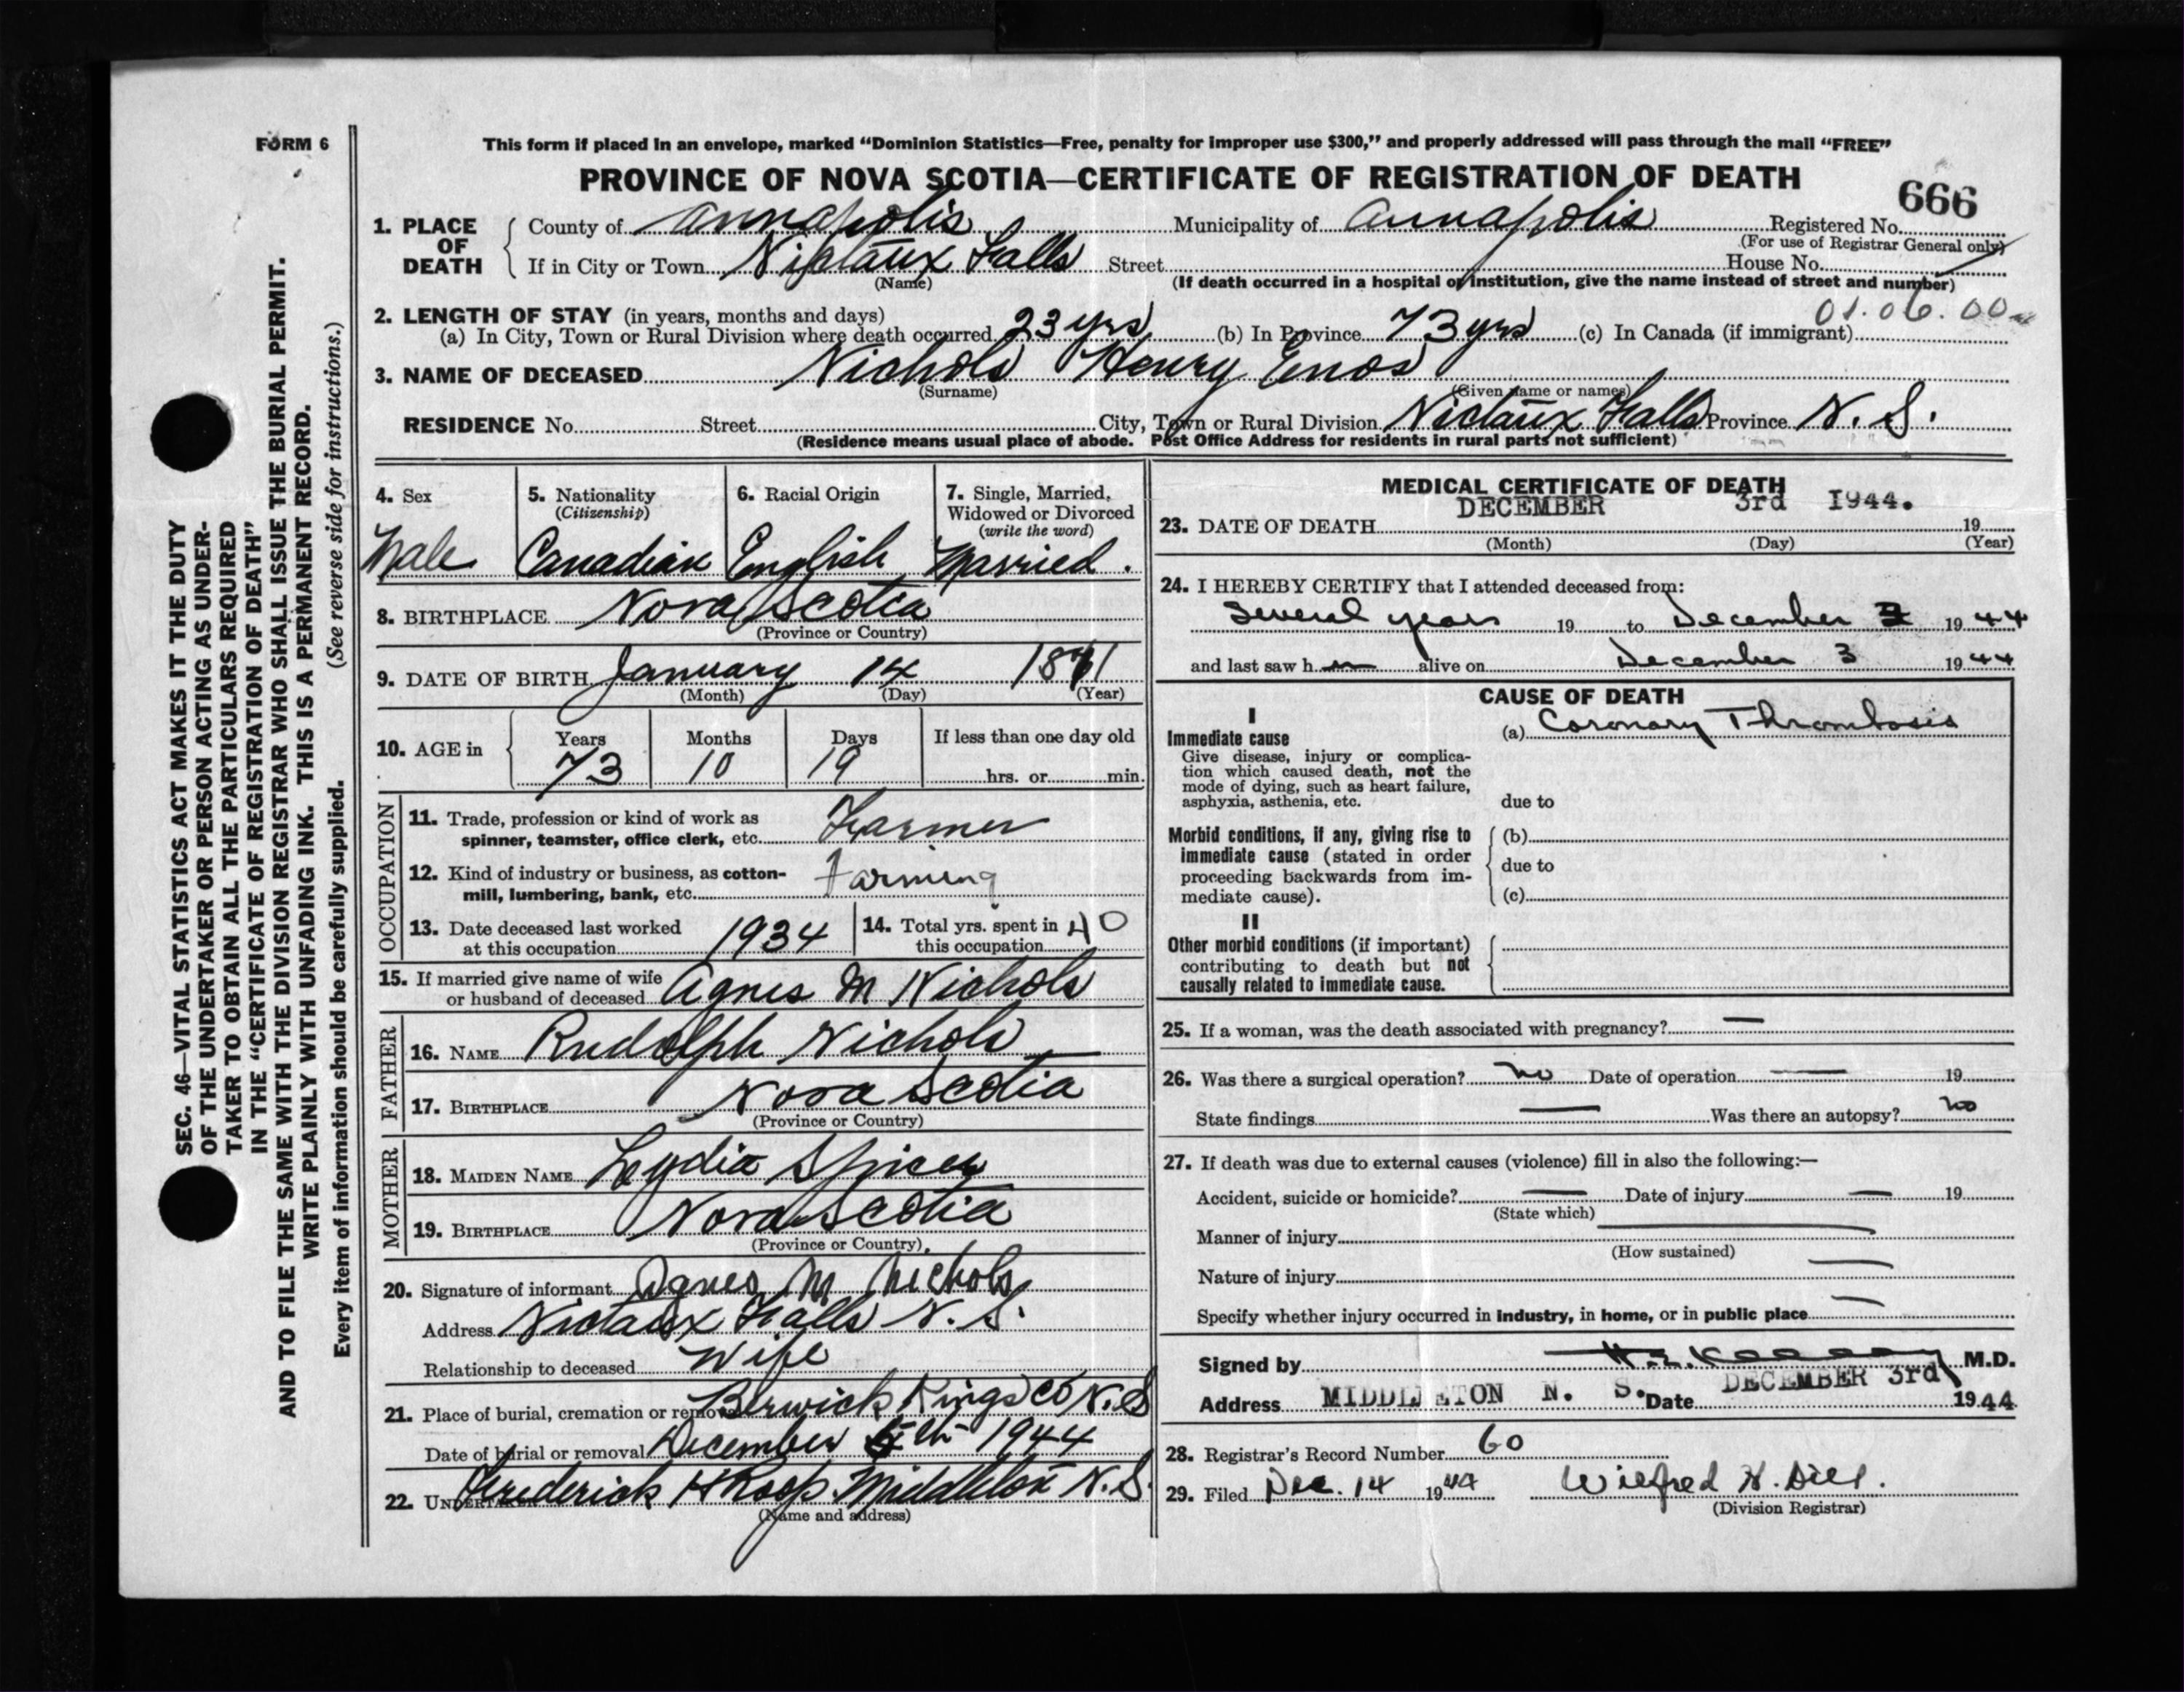 FORM 6
This form if placed in an envelope, marked “Dominion Statistics—Free, penalty for improper use $300,” and properly addressed will pass through the mail “FREE”
PROVINCE OF NOVA SCOTIA—CERTIFICATE OF REGISTRATION OF DEATH
666
1. PLACE OF DEATH
County of Annapolis Municipality of Annapolis Registered No.
(For use of Registrar General only)
If in City or Town Nictaux Falls Street House No.
(Name) (If death occurred in a hospital or institution, give the name instead of street and number)
01.06.00
2. LENGTH OF STAY (in years, months and days)
(a) In City, Town or Rural Division where death occurred 23 yrs (b) In Province 73 yrs (c) In Canada (if immigrant)
3. NAME OF DECEASED Nichols Henry Enos
(Surname) (Given name or names)
RESIDENCE No. Street City, Town or Rural Division Nictaux Falls Province N. S.
(Residence means usual place of abode. Post Office Address for residents in rural parts not sufficient)
4. Sex Male
5. Nationality (Citizenship) Canadian
6. Racial Origin English
7. Single, Married, Widowed or Divorced (write the word) Married.
8. BIRTHPLACE Nova Scotia
(Province or Country)
9. DATE OF BIRTH January 14 1871
(Month) (Day) (Year)
10. AGE in Years 73 Months 10 Days 19 If less than one day old hrs. or min.
OCCUPATION
11. Trade, profession or kind of work as spinner, teamster, office clerk, etc. Farmer
12. Kind of industry or business, as cotton-mill, lumbering, bank, etc. Farming
13. Date deceased last worked at this occupation 1934
14. Total yrs. spent in this occupation 40
15. If married give name of wife or husband of deceased Agnes M Nichols
FATHER
16. NAME Rudolph Nichols
17. BIRTHPLACE Nova Scotia
(Province or Country)
MOTHER
18. MAIDEN NAME Lydia Spicer
19. BIRTHPLACE Nova Scotia
(Province or Country)
20. Signature of informant Agnes M Nichols
Address Nictaux Falls N. S.
Relationship to deceased Wife
21. Place of burial, cremation or removal Berwick Kings Co N.S
Date of burial or removal December 5th 1944
22. UNDERTAKER Frederick H Roop Middleton N.S.
(Name and address)
MEDICAL CERTIFICATE OF DEATH
DECEMBER 3rd 1944.
23. DATE OF DEATH 19
(Month) (Day) (Year)
24. I HEREBY CERTIFY that I attended deceased from:
Several years 19 to December 3 1944
and last saw h m alive on December 3 1944
CAUSE OF DEATH
I
Immediate cause
Give disease, injury or complication which caused death, not the mode of dying, such as heart failure, asphyxia, asthenia, etc.
(a) Coronary Thrombosis
due to
Morbid conditions, if any, giving rise to immediate cause (stated in order proceeding backwards from immediate cause).
(b)
due to
(c)
II
Other morbid conditions (if important) contributing to death but not causally related to immediate cause.
25. If a woman, was the death associated with pregnancy? —
26. Was there a surgical operation? no Date of operation — 19
State findings — Was there an autopsy? no
27. If death was due to external causes (violence) fill in also the following:—
Accident, suicide or homicide? — Date of injury — 19
(State which)
Manner of injury —
(How sustained)
Nature of injury —
Specify whether injury occurred in industry, in home, or in public place —
Signed by M.D.
Address MIDDLETON N. S. Date DECEMBER 3rd 1944
28. Registrar's Record Number 60
29. Filed Dec. 14 1944 Wilfred H.
(Division Registrar)
SEC. 46—VITAL STATISTICS ACT MAKES IT THE DUTY
OF THE UNDERTAKER OR PERSON ACTING AS UNDER-
TAKER TO OBTAIN ALL THE PARTICULARS REQUIRED
IN THE “CERTIFICATE OF REGISTRATION OF DEATH”
AND TO FILE THE SAME WITH THE DIVISION REGISTRAR WHO SHALL ISSUE THE BURIAL PERMIT.
WRITE PLAINLY WITH UNFADING INK. THIS IS A PERMANENT RECORD.
Every item of information should be carefully supplied. (See reverse side for instructions.)